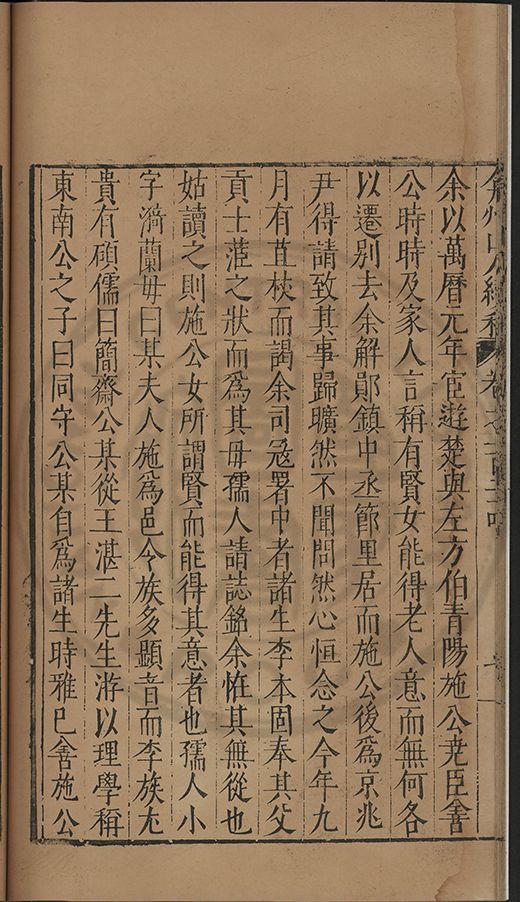 弇州山人續稿 卷之一百
余以萬曆元年宦遊楚與左方伯青陽施公尭臣善
公時時及家人言稱有賢女能得老人意而無何各
以遷别去余解鄖鎮中丞節里居而施公後爲京兆
尹得請致其事歸曠然不聞問然心恒念之今年九
月有苴杖而謁余司冦署中者諸生李本固奉其父
貢士蒞之狀而爲其母孺人請誌銘余惟其無從也
姑讀之則施公女所謂賢而能得其意者也孺人小
字漪蘭毋曰某夫人施為邑令族多顯者而李族尤
貴有碩儒曰簡齋公某從王湛二先生游以理學稱
東南公之子曰同守公某自爲諸生時雅已善施公